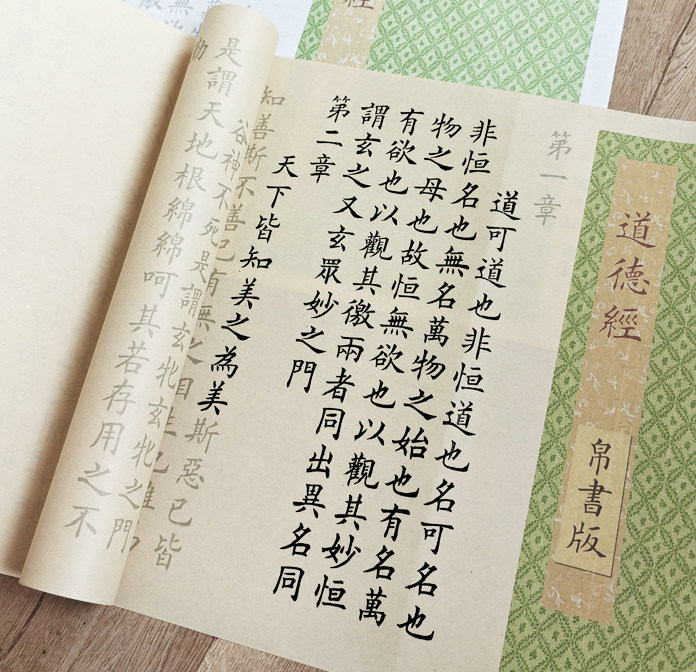 道德經
帛書版
第一章
道可道也非恒道也名可名也
非恒名也無名萬物之始也有名萬
物之母也故恒無欲也以觀其妙恒
有欲也以觀其徼兩者同出異名同
謂玄之又玄眾妙之門
第二章
天下皆知美之為美斯惡已皆
知善斯不善已有無之
谷神不死是謂玄牝玄牝之門
是謂天地根綿綿呵其若存用之不
經